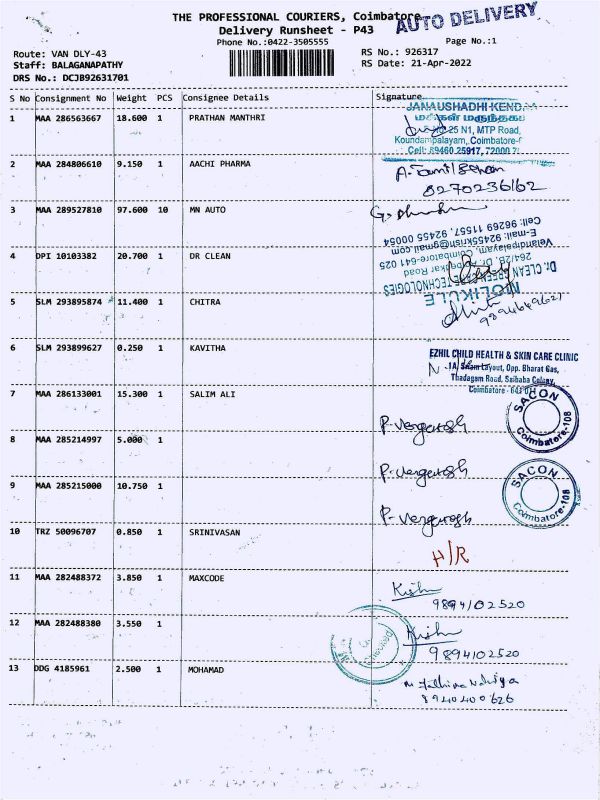 THE PROFESSIONAL COURIERS, Coimbatore
AUTO DELIVERY
Delivery Runsheet - P43
Phone No.:0422-3505555
Page No.:1
Route: VAN DLY-43
RS No.: 926317
Staff: BALAGANAPATHY
RS Date: 21-Apr-2022
DRS No.: DCJB92631701
S No Consignment No Weight PCS Consignee Details Signature
1 MAA 286563667 18.600 1 PRATHAN MANTHRI
JANAUSHADHI KENDRA
மக்கள் மருந்தகம்
25 N1, MTP Road,
Koundampalayam, Coimbatore-
Cell: 89460 25917, 72000
2 MAA 284806610 9.150 1 AACHI PHARMA
A. Tamil Selvan
8270236162
3 MAA 289527810 97.600 10 MN AUTO
4 DPI 10103382 20.700 1 DR CLEAN
MOLIKULE
Dr. CLEAN GREEN TECHNOLOGIES
264/2B, Dr. Ambedkar Road
Velandipalayam, Coimbatore-641 025
E-mail: 92455krish@gmail.com
Cell: 96269 11557, 92455 00054
5 SLM 293895874 11.400 1 CHITRA
6 SLM 293899627 0.250 1 KAVITHA
EZHIL CHILD HEALTH & SKIN CARE CLINIC
Layout, Opp. Bharat Gas,
Thadagam Road, Saibaba Colony,
Coimbatore -
7 MAA 286133001 15.300 1 SALIM ALI
SACON
Coimbatore-108
8 MAA 285214997 5.000 1
9 MAA 285215000 10.750 1
SACON
Coimbatore-108
10 TRZ 50096707 0.850 1 SRINIVASAN
H/R
11 MAA 282488372 3.850 1 MAXCODE
9894102520
12 MAA 282488380 3.550 1
Checked
9894102520
13 DDG 4185961 2.500 1 MOHAMAD
8940400626